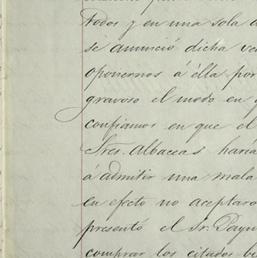 todos y en una sola
se anunció dicha
oponernos á élla por
gravoso el modo en
confiamos en que el
Sres. Albaceas haria
á admitir una mala
en efecto no aceptaro
presentó el Sr. Payu
comprar los citados